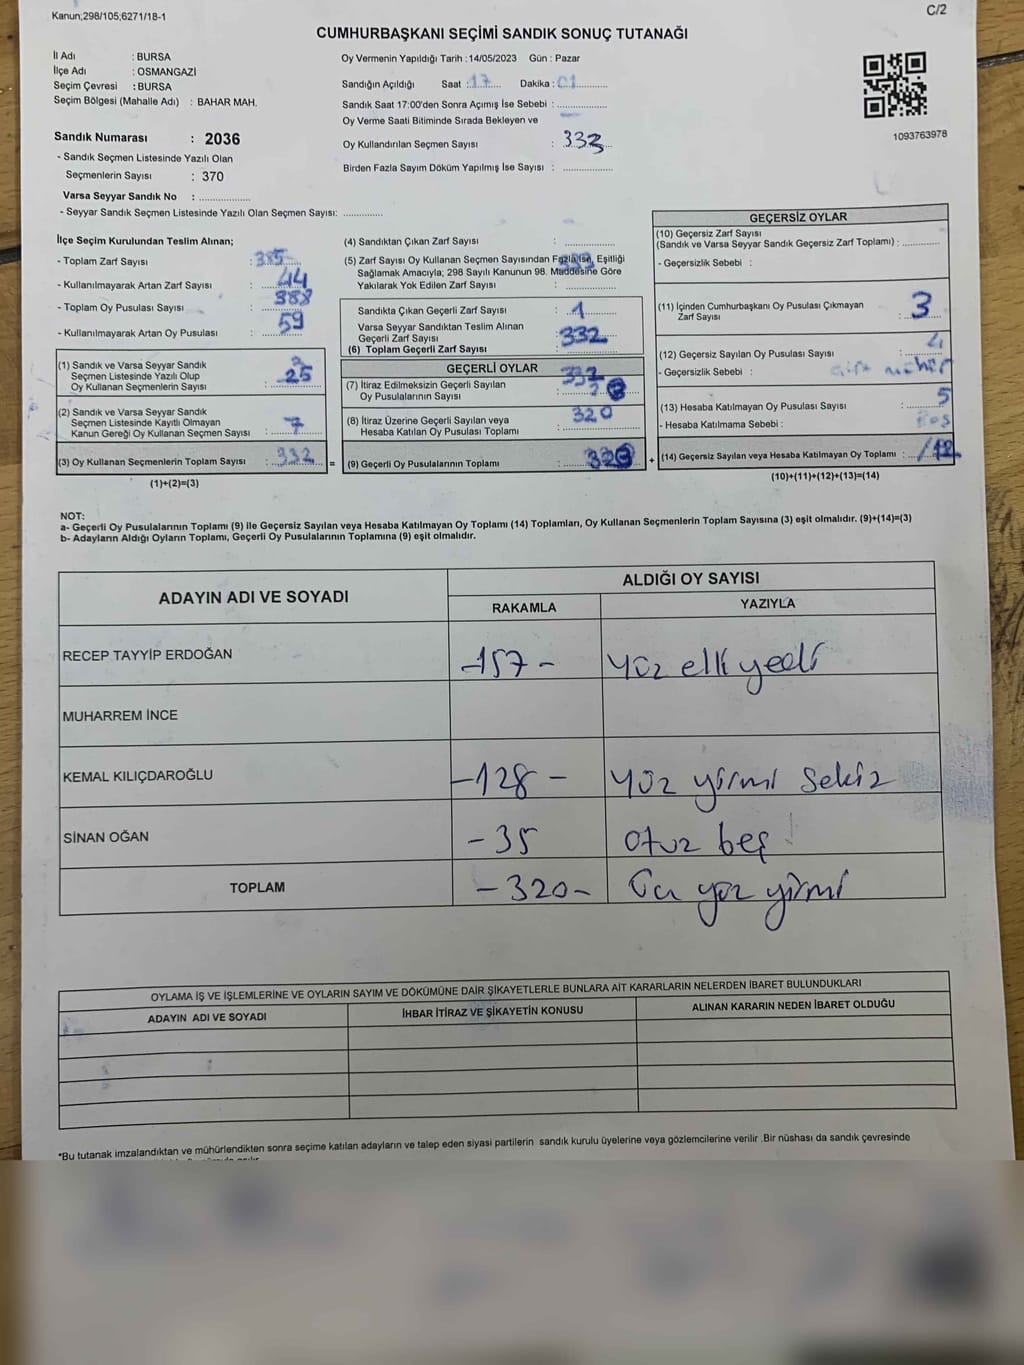 Kanun;298/105;6271/18-1
C/2
CUMHURBAŞKANI SEÇİMİ SANDIK SONUÇ TUTANAĞI
İl Adı : BURSA
İlçe Adı : OSMANGAZİ
Seçim Çevresi : BURSA
Seçim Bölgesi (Mahalle Adı) : BAHAR MAH.
Oy Vermenin Yapıldığı Tarih :14/05/2023 Gün : Pazar
Sandığın Açıldığı Saat :17 Dakika : 01
Sandık Saat 17:00'den Sonra Açımış İse Sebebi :
Oy Verme Saati Bitiminde Sırada Bekleyen ve
Oy Kullandırılan Seçmen Sayısı : 333
Birden Fazla Sayım Döküm Yapılmış İse Sayısı :
1093763978
Sandık Numarası : 2036
- Sandık Seçmen Listesinde Yazılı Olan
Seçmenlerin Sayısı : 370
Varsa Seyyar Sandık No :
- Seyyar Sandık Seçmen Listesinde Yazılı Olan Seçmen Sayısı:
İlçe Seçim Kurulundan Teslim Alınan;
- Toplam Zarf Sayısı : 385
- Kullanılmayarak Artan Zarf Sayısı : 44
- Toplam Oy Pusulası Sayısı : 388
- Kullanılmayarak Artan Oy Pusulası : 59
(1) Sandık ve Varsa Seyyar Sandık
Seçmen Listesinde Yazılı Olup
Oy Kullanan Seçmenlerin Sayısı :
(2) Sandık ve Varsa Seyyar Sandık
Seçmen Listesinde Kayıtlı Olmayan
Kanun Gereği Oy Kullanan Seçmen Sayısı : 7
(3) Oy Kullanan Seçmenlerin Toplam Sayısı : 332 =
(1)+(2)=(3)
(4) Sandıktan Çıkan Zarf Sayısı :
(5) Zarf Sayısı Oy Kullanan Seçmen Sayısından Fazla ise, Eşitliği
Sağlamak Amacıyla; 298 Sayılı Kanunun 98. Maddesine Göre
Yakılarak Yok Edilen Zarf Sayısı :
Sandıkta Çıkan Geçerli Zarf Sayısı : 1
Varsa Seyyar Sandıktan Teslim Alınan
Geçerli Zarf Sayısı : 332
(6) Toplam Geçerli Zarf Sayısı :
GEÇERLİ OYLAR
(7) İtiraz Edilmeksizin Geçerli Sayılan
Oy Pusulalarının Sayısı :
(8) İtiraz Üzerine Geçerli Sayılan veya
Hesaba Katılan Oy Pusulası Toplamı : 320
(9) Geçerli Oy Pusulalarının Toplamı : +
GEÇERSİZ OYLAR
(10) Geçersiz Zarf Sayısı
(Sandık ve Varsa Seyyar Sandık Geçersiz Zarf Toplamı) :
- Geçersizlik Sebebi :
(11) İçinden Cumhurbaşkanı Oy Pusulası Çıkmayan
Zarf Sayısı : 3
(12) Geçersiz Sayılan Oy Pusulası Sayısı : 4
- Geçersizlik Sebebi : mühür
(13) Hesaba Katılmayan Oy Pusulası Sayısı : 5
- Hesaba Katılmama Sebebi : Boş
(14) Geçersiz Sayılan veya Hesaba Katılmayan Oy Toplamı : 12
(10)+(11)+(12)+(13)=(14)
NOT:
a- Geçerli Oy Pusulalarının Toplamı (9) ile Geçersiz Sayılan veya Hesaba Katılmayan Oy Toplamı (14) Toplamları, Oy Kullanan Seçmenlerin Toplam Sayısına (3) eşit olmalıdır. (9)+(14)=(3)
b- Adayların Aldığı Oyların Toplamı, Geçerli Oy Pusulalarının Toplamına (9) eşit olmalıdır.
ADAYIN ADI VE SOYADI
ALDIĞI OY SAYISI
RAKAMLA YAZIYLA
RECEP TAYYİP ERDOĞAN -157- Yüz elli yedi
MUHARREM İNCE
KEMAL KILIÇDAROĞLU -128- Yüz yirmi Sekiz
SİNAN OĞAN -35 Otuz beş
TOPLAM -320- Üç yüz yirmi
OYLAMA İŞ VE İŞLEMLERİNE VE OYLARIN SAYIM VE DÖKÜMÜNE DAİR ŞİKAYETLERLE BUNLARA AİT KARARLARIN NELERDEN İBARET BULUNDUKLARI
ADAYIN ADI VE SOYADI İHBAR İTİRAZ VE ŞİKAYETİN KONUSU ALINAN KARARIN NEDEN İBARET OLDUĞU
*Bu tutanak imzalandıktan ve mühürlendikten sonra seçime katılan adayların ve talep eden siyasi partilerin sandık kurulu üyelerine veya gözlemcilerine verilir .Bir nüshası da sandık çevresinde